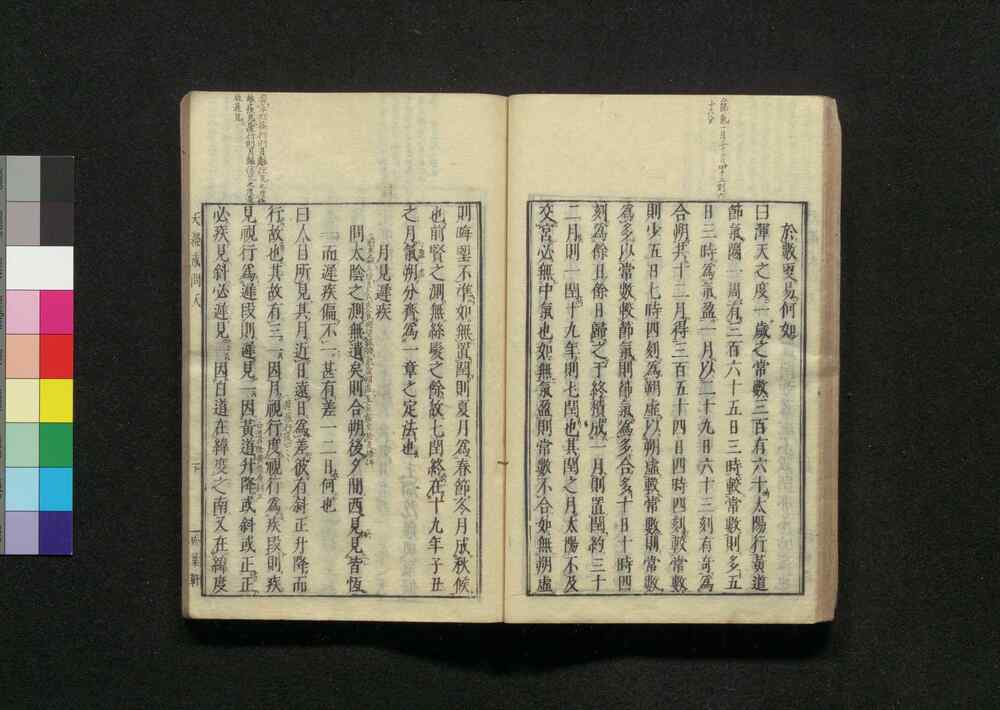 於數更易何如
曰渾天之度一歲之常數三百有六十太陽行黃道
節氣滿一周有三百六十五日三時較常數則多五
日三時為氣盈一月以二十九日六十三刻有奇為
合朔共十二月得三百五十四日四時四刻較常數
則少五日七時四刻為朔虛以朔虛較常數則常數
為多以常數較節氣則節氣為多合多十日十時四
刻為餘日餘日歸之于終積成一月則置閏約三十
二月則一閏十九年則七閏也其閏之月太陽不及
交宮必無中氣也如無氣盈則常數不合如無朔虛
則晦望不準如無置閏則夏月為春節冬月成秋候
也前賢之測無絲髮之餘故七閏終在十九年子丑
之月氣朔分齊為一章之定法也
月見遲疾
問太陰之測無遺矣則合朔後夕間西見見皆恆
而遲疾偏不一甚有差一二日何也
曰人目所見其月近日遠日為差彼有斜正升降而
行故也其故有三一因月視行度視行為疾段則疾
見視行為遲段則遲見一因黃道升降或斜或正正
必疾見斜必遲見一因白道在緯度之南又在緯度
天經或問
下